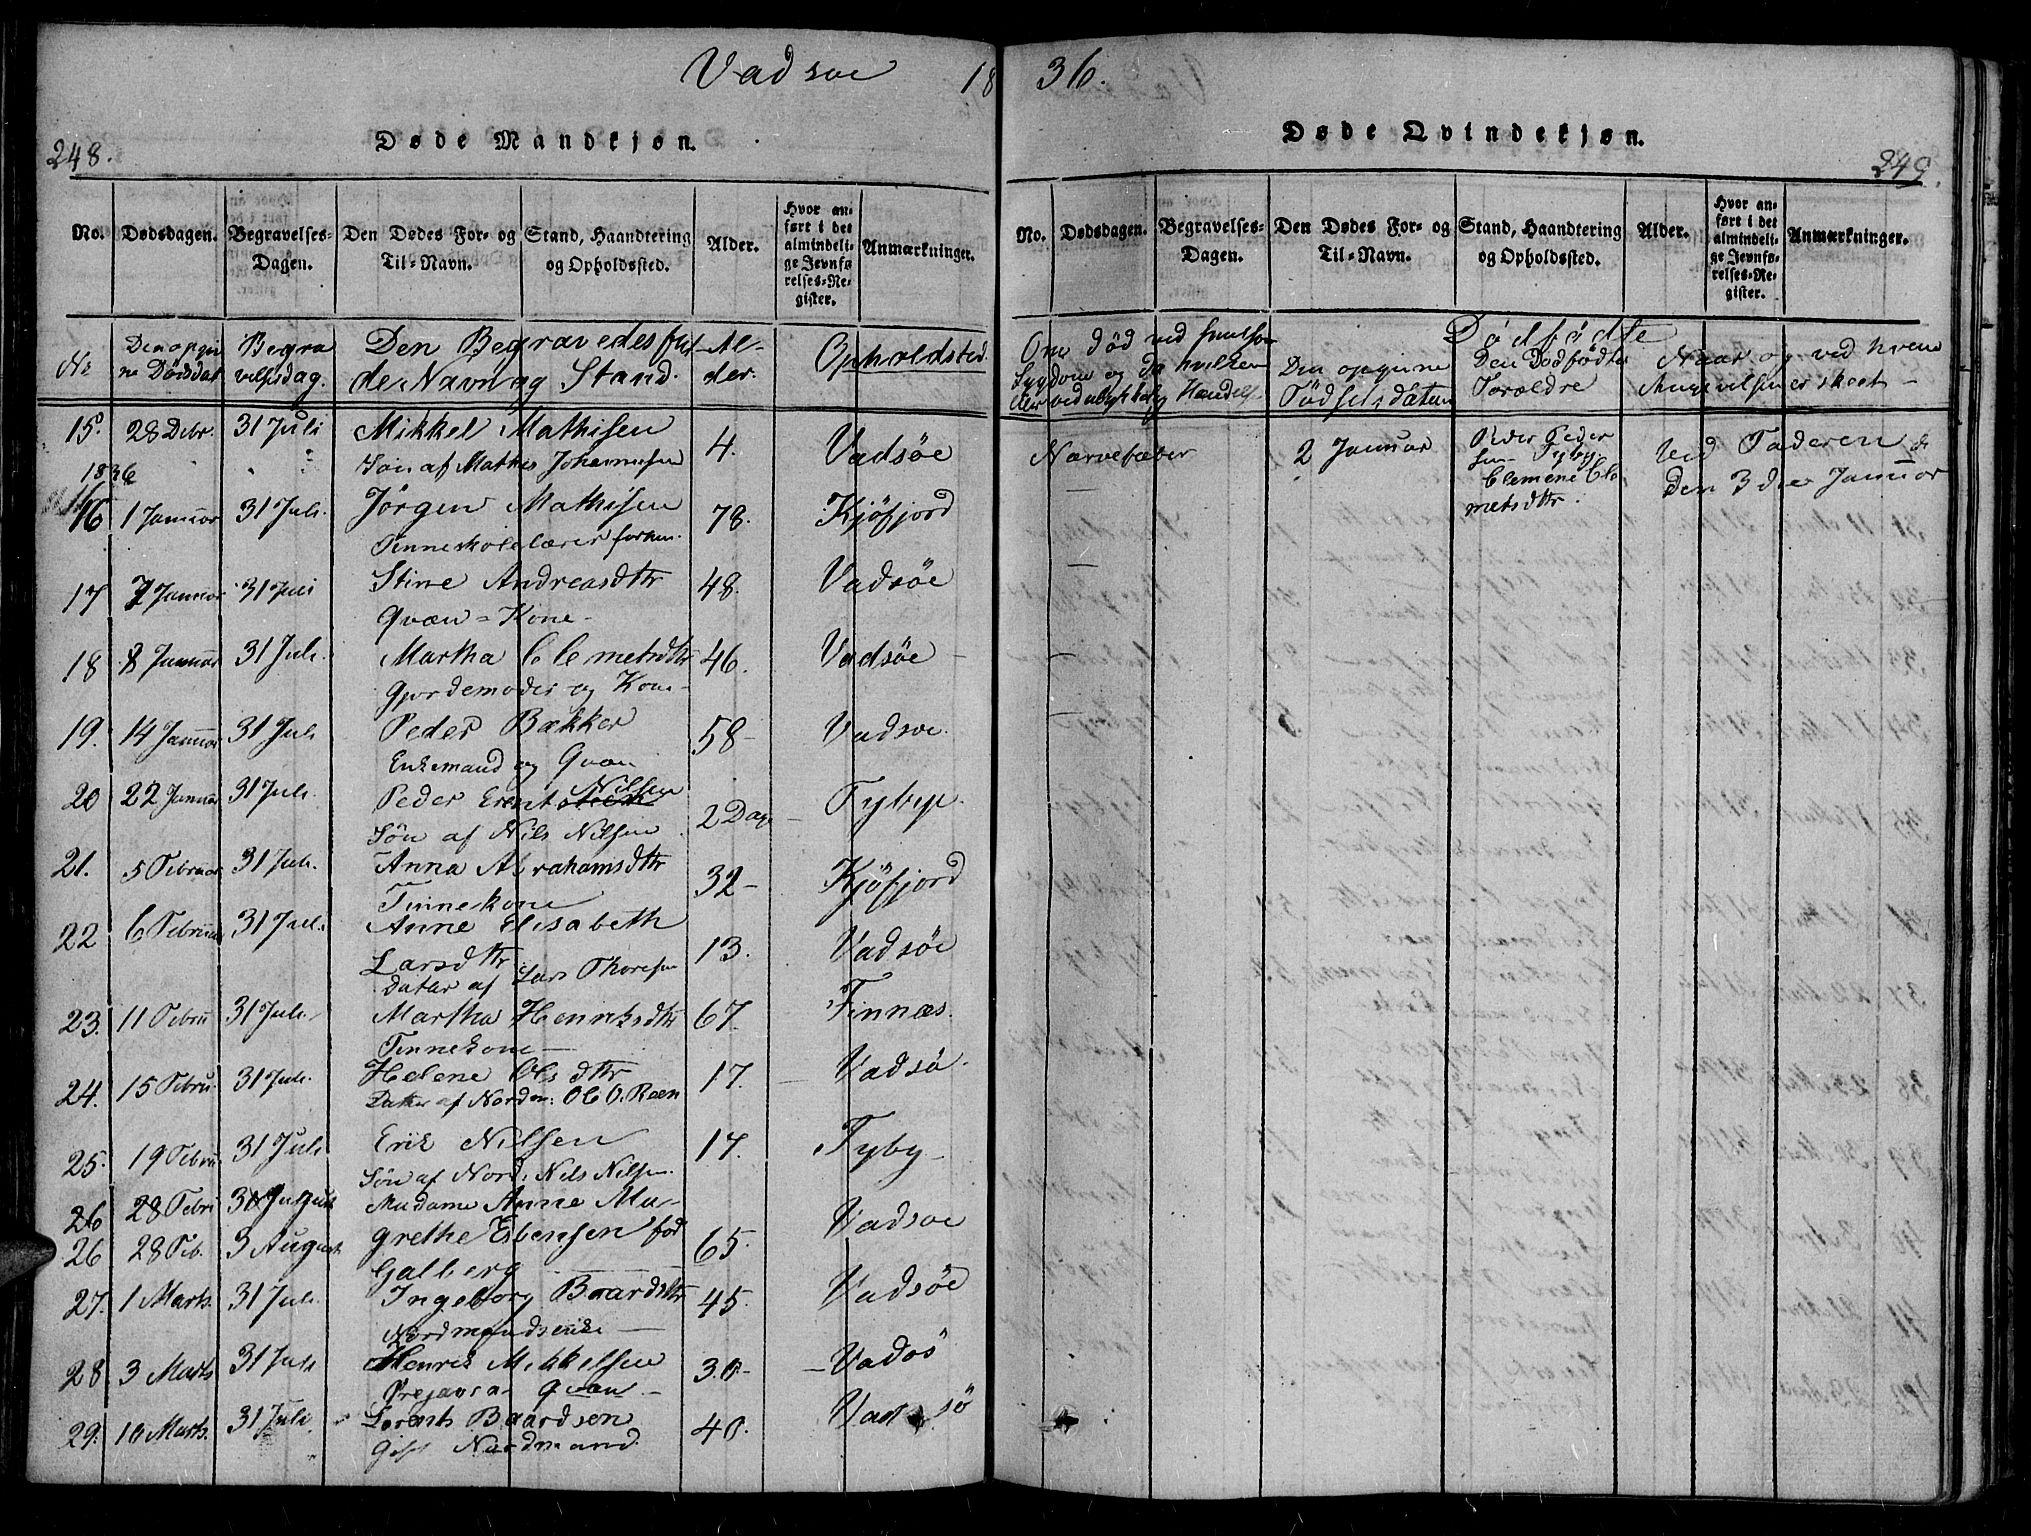 Vadsøe 18
248.
Døde Mandkjøn.
No. Dødsdagen. Begravelses-Dagen. Den Dødes For- og Til-Navn. Stand, Haandtering og Opholdssted. Alder. Hvor anført i det almindelige Jevnførelses-Register. Anmærkninger.
No Den opgivne Dødsdat Begravelsesdag. Den Begravedes fulde Navn og Stand. Alder. Opholdsted
15. 28 Debr. 31 Juli Mikkel Mathisen 4. Vadsøe
Søn af Mathis Johannesen
1836
16 1 Januar 31 Juli Jørgen Mathisen 78. Kjøfjord
Finneskolelærer
17 7 Januar 31 Juli Stine Andreasdtr 48. Vadsøe
Qvæn=Kone-
18 8 Januar 31 Juli Martha Clemetsdtr 46. Vadsøe
Gjordemoder og Kone-
19. 14 Januar 31 Juli Peder Bakker 58- Vadsøe.
Enkemand og Qvæn
Nilsen
20 22 Januar 31 Juli. Peder 2 Dage Fybye.
Søn af Nils Nilsen
21. 5 Februar 31 Juli. Anna Abrahamsdtr 32- Kjøfjord
Finnekone
22 6 Februar 31 Juli. Anne Elisabeth 13. Vadsøe
Larsdtr
Datter af Lars Thoresen
23. 11 Febru 31 Juli Martha Henriksdtr 67. Finnæs.
Finnekone
24. 15 Febru. 31 Juli. Helene Olsdtr 17. Vadsø.
Datter af Nordm: Ole O. Roen
25. 19 Febru 31 Juli Erik Nilsen 17. Fyby
Søn af Nord: Nils Nilsen.
26 28 Febru Madame Anne Ma- Vadsøe
26 28 Feb. 3 August grethe Esbensen fød 65.
Galberg
27. 1 Marts. 31 Juli. Ingeborg Baardsdtr 45. Vadsøe
Nordmandsenke
28 3 Marts 31 Juli Henrik Mikkelsen 30- Vadøs
Prejavra- Qvæn-
29. 10 Marts. 31 Juli Lorents Baardsen 40. Vadsø
Gift Nordmand.
36.
Døde Qvindekjøn.
249.
No. Dødsdagen. Begravelses-Dagen. Den Dødes For- og Til-Navn. Stand, Haandtering og Opholdssted. Alder. Hvor anført i det almindelige Jevnførelses-Register. Anmærkninger.
Dødfødte
Om død ved Smitsom Sygdom og da hvilken eller ved ulykkelig Hændelse Den opgivne Fødselsdatum Den Dødfødtes Forældre Naar og ved hvem Angivelsen er skeet-
Nervefeber 2 Januar Peder Peder
sen Fyby
Clemene Cle
metsdtr. Ved Faderen
Den 3die Januar